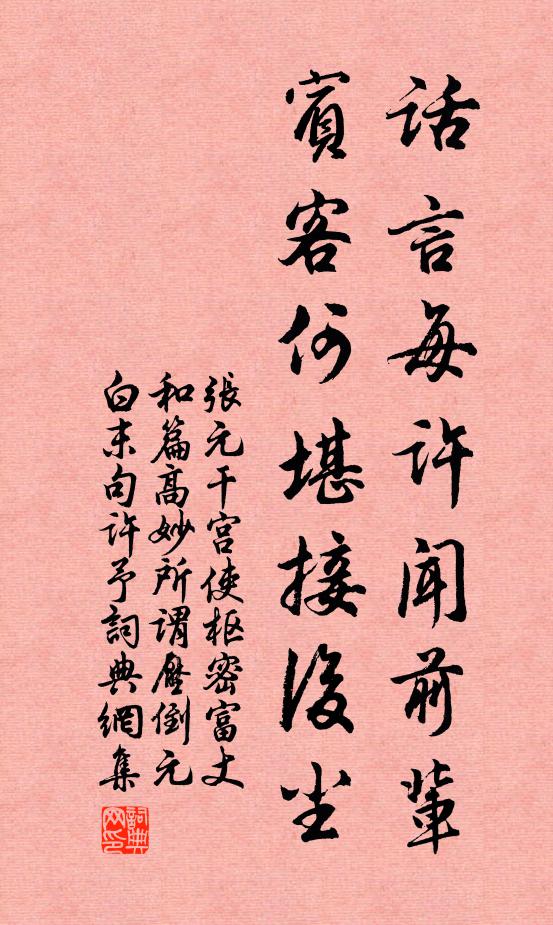 话言每许闻前辈
宾客何堪接後尘
張元干宫使枢密富丈
和篇高妙所谓壓倒元
白末句许予詞典網集
詞典网印